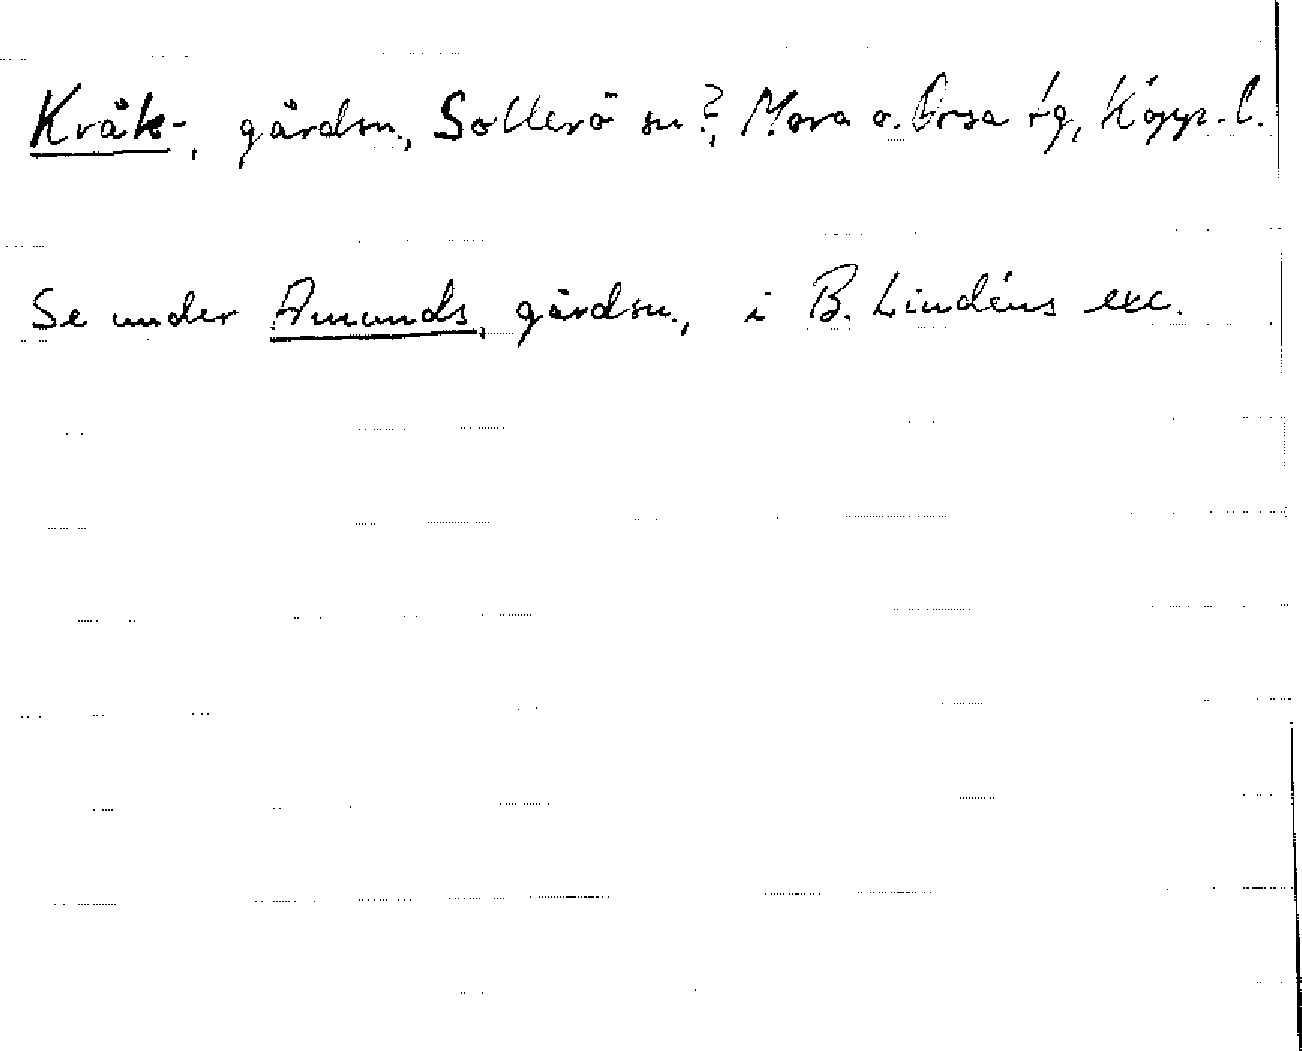 Kråk-, gårdsn., Sollerö sn?, Mora o. Orsa tg, Kopp. l.
Se under Amunds, gårdsn., i B. Lindéns exc.